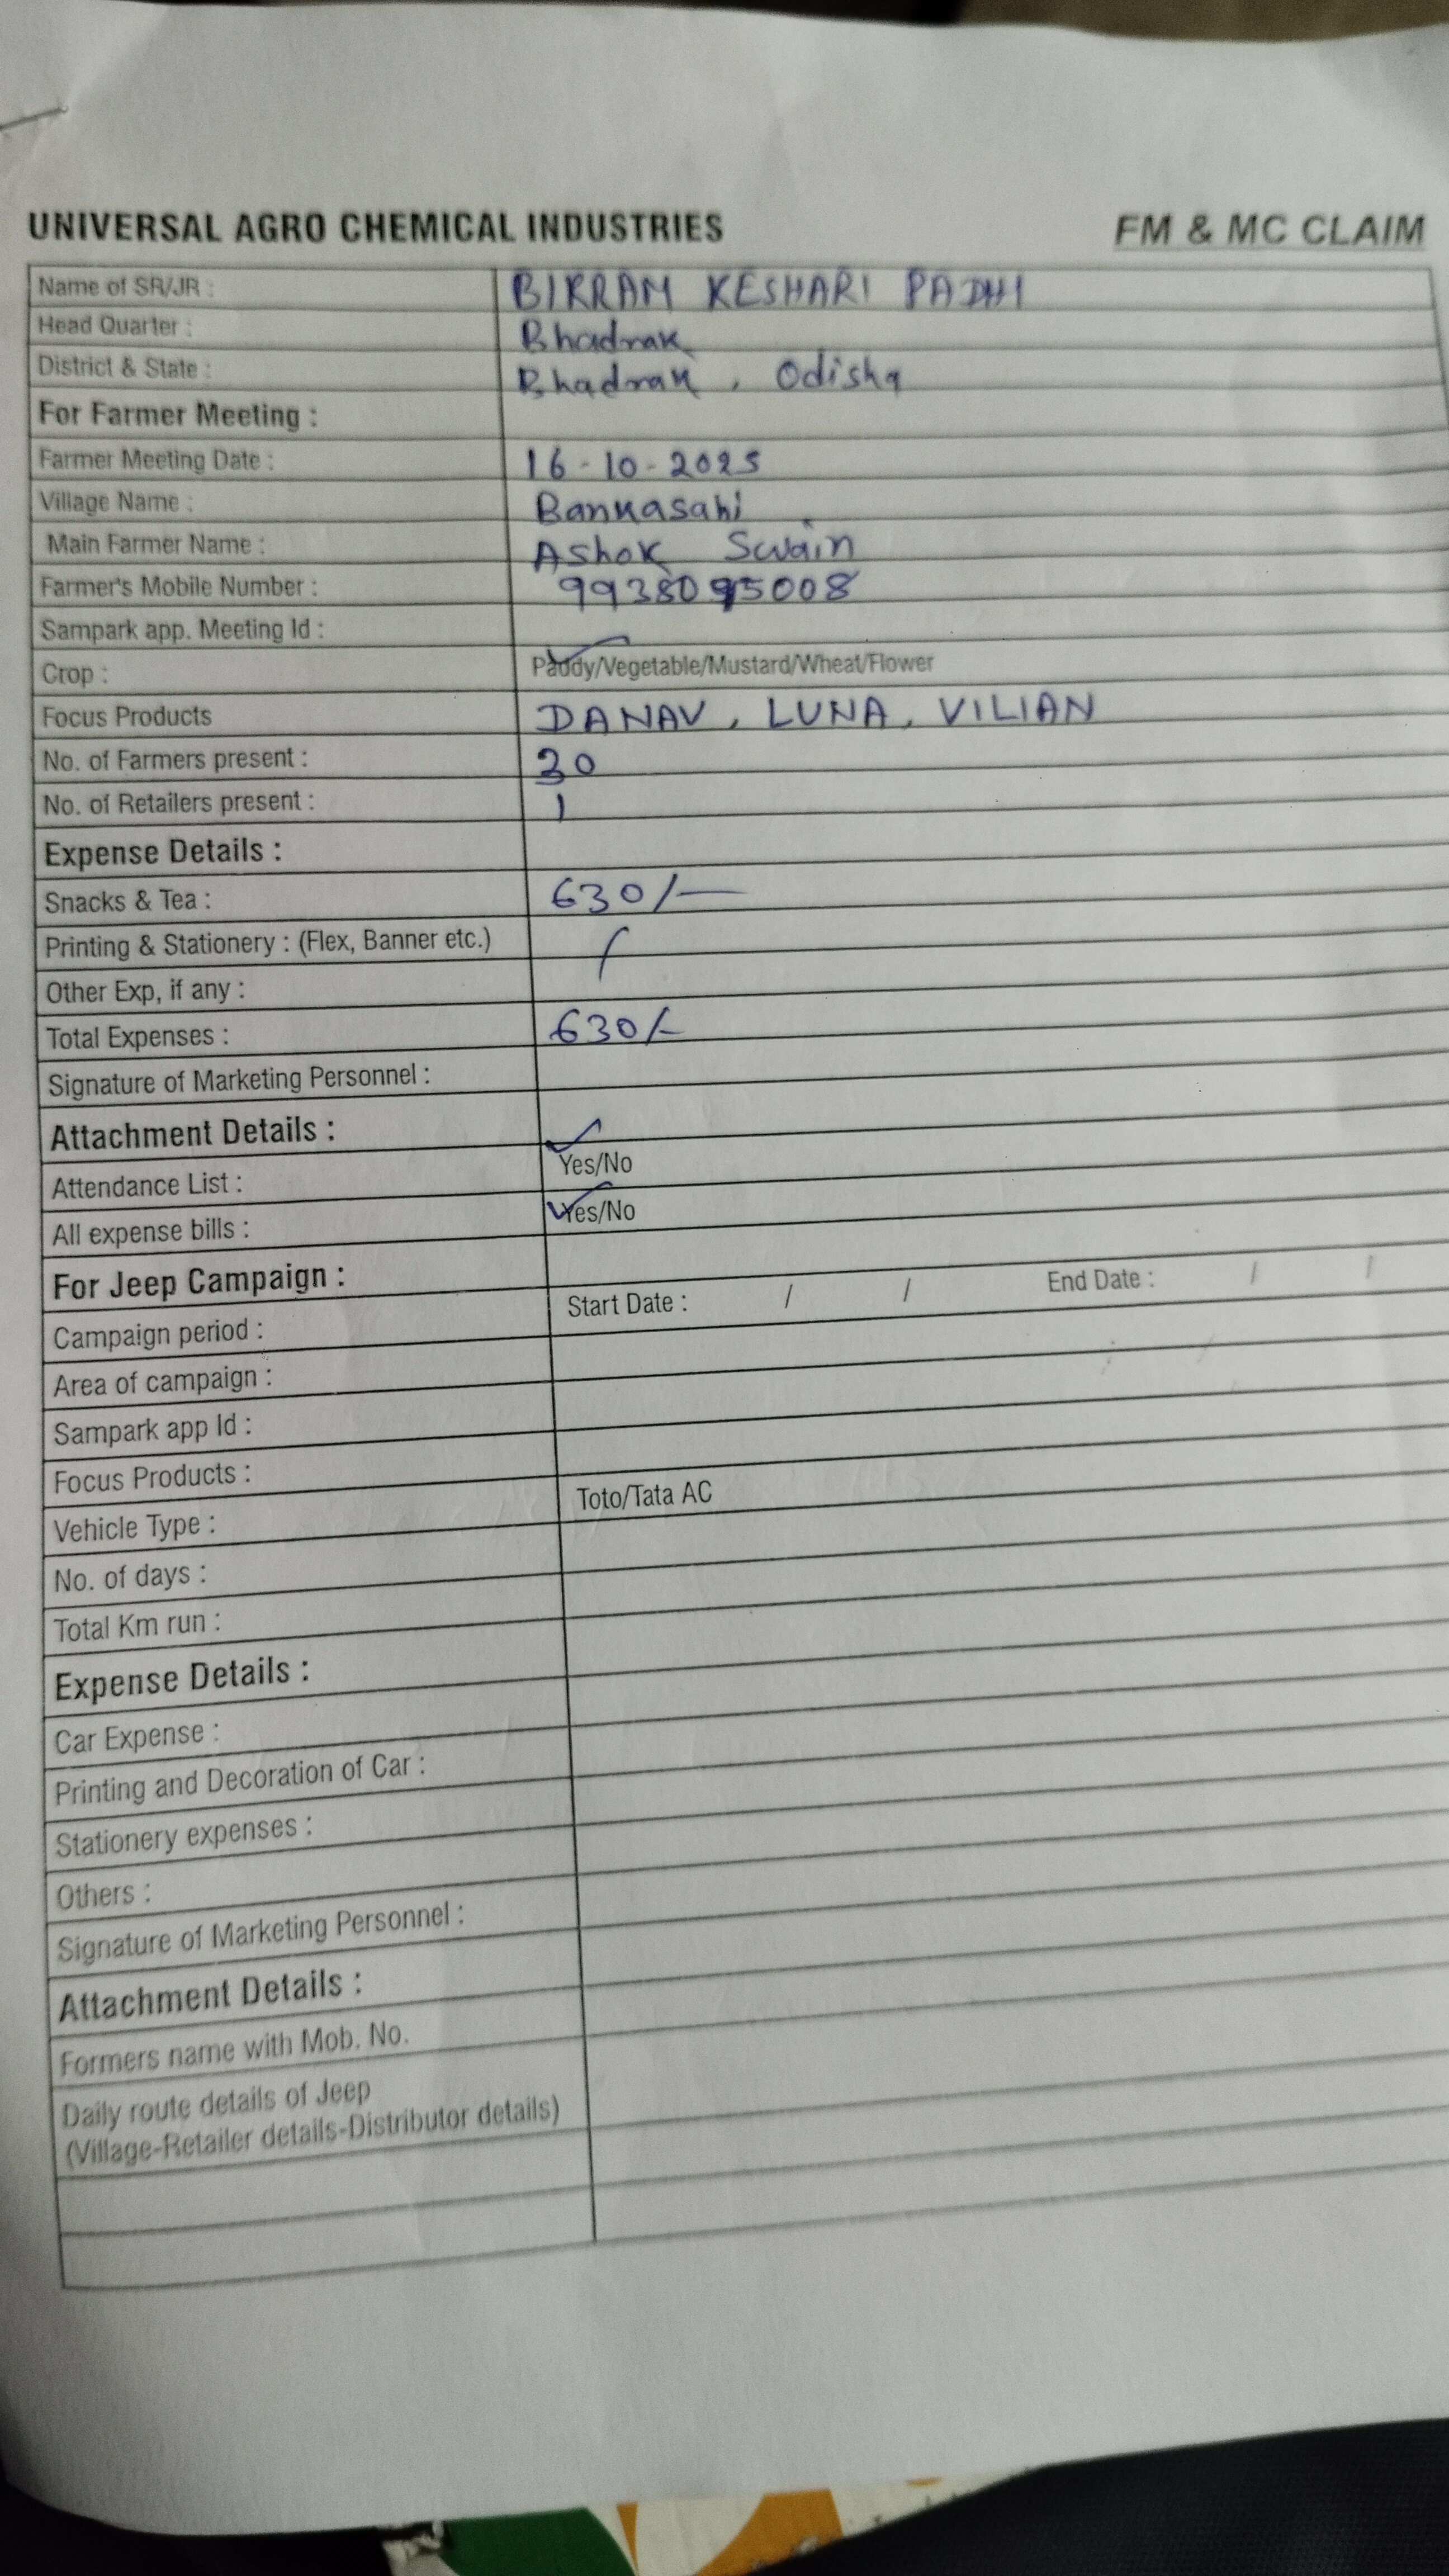 UNIVERSAL AGRO CHEMICAL INDUSTRIES FM & MC CLAIM
Name of SR/JR : BIKRAM KESHARI PADHI
Head Quarter : Bhadrak
District & State : Bhadrak, Odisha
For Farmer Meeting :
Farmer Meeting Date : 16-10-2025
Village Name : Bankasahi
Main Farmer Name : Ashok Swain
Farmer's Mobile Number : 9938095008
Sampark app. Meeting Id :
Crop : Paddy/Vegetable/Mustard/Wheat/Flower
Focus Products DANAV, LUNA, VILIAN
No. of Farmers present : 30
No. of Retailers present : 1
Expense Details :
Snacks & Tea : 630/-
Printing & Stationery : (Flex, Banner etc.)
Other Exp, if any :
Total Expenses : 630/-
Signature of Marketing Personnel :
Attachment Details :
Attendance List : Yes/No
All expense bills : Yes/No
For Jeep Campaign :
Campaign period : Start Date : / / End Date : / /
Area of campaign :
Sampark app Id :
Focus Products :
Vehicle Type : Toto/Tata AC
No. of days :
Total Km run :
Expense Details :
Car Expense :
Printing and Decoration of Car :
Stationery expenses :
Others :
Signature of Marketing Personnel :
Attachment Details :
Formers name with Mob. No.
Daily route details of Jeep
(Village-Retailer details-Distributor details)